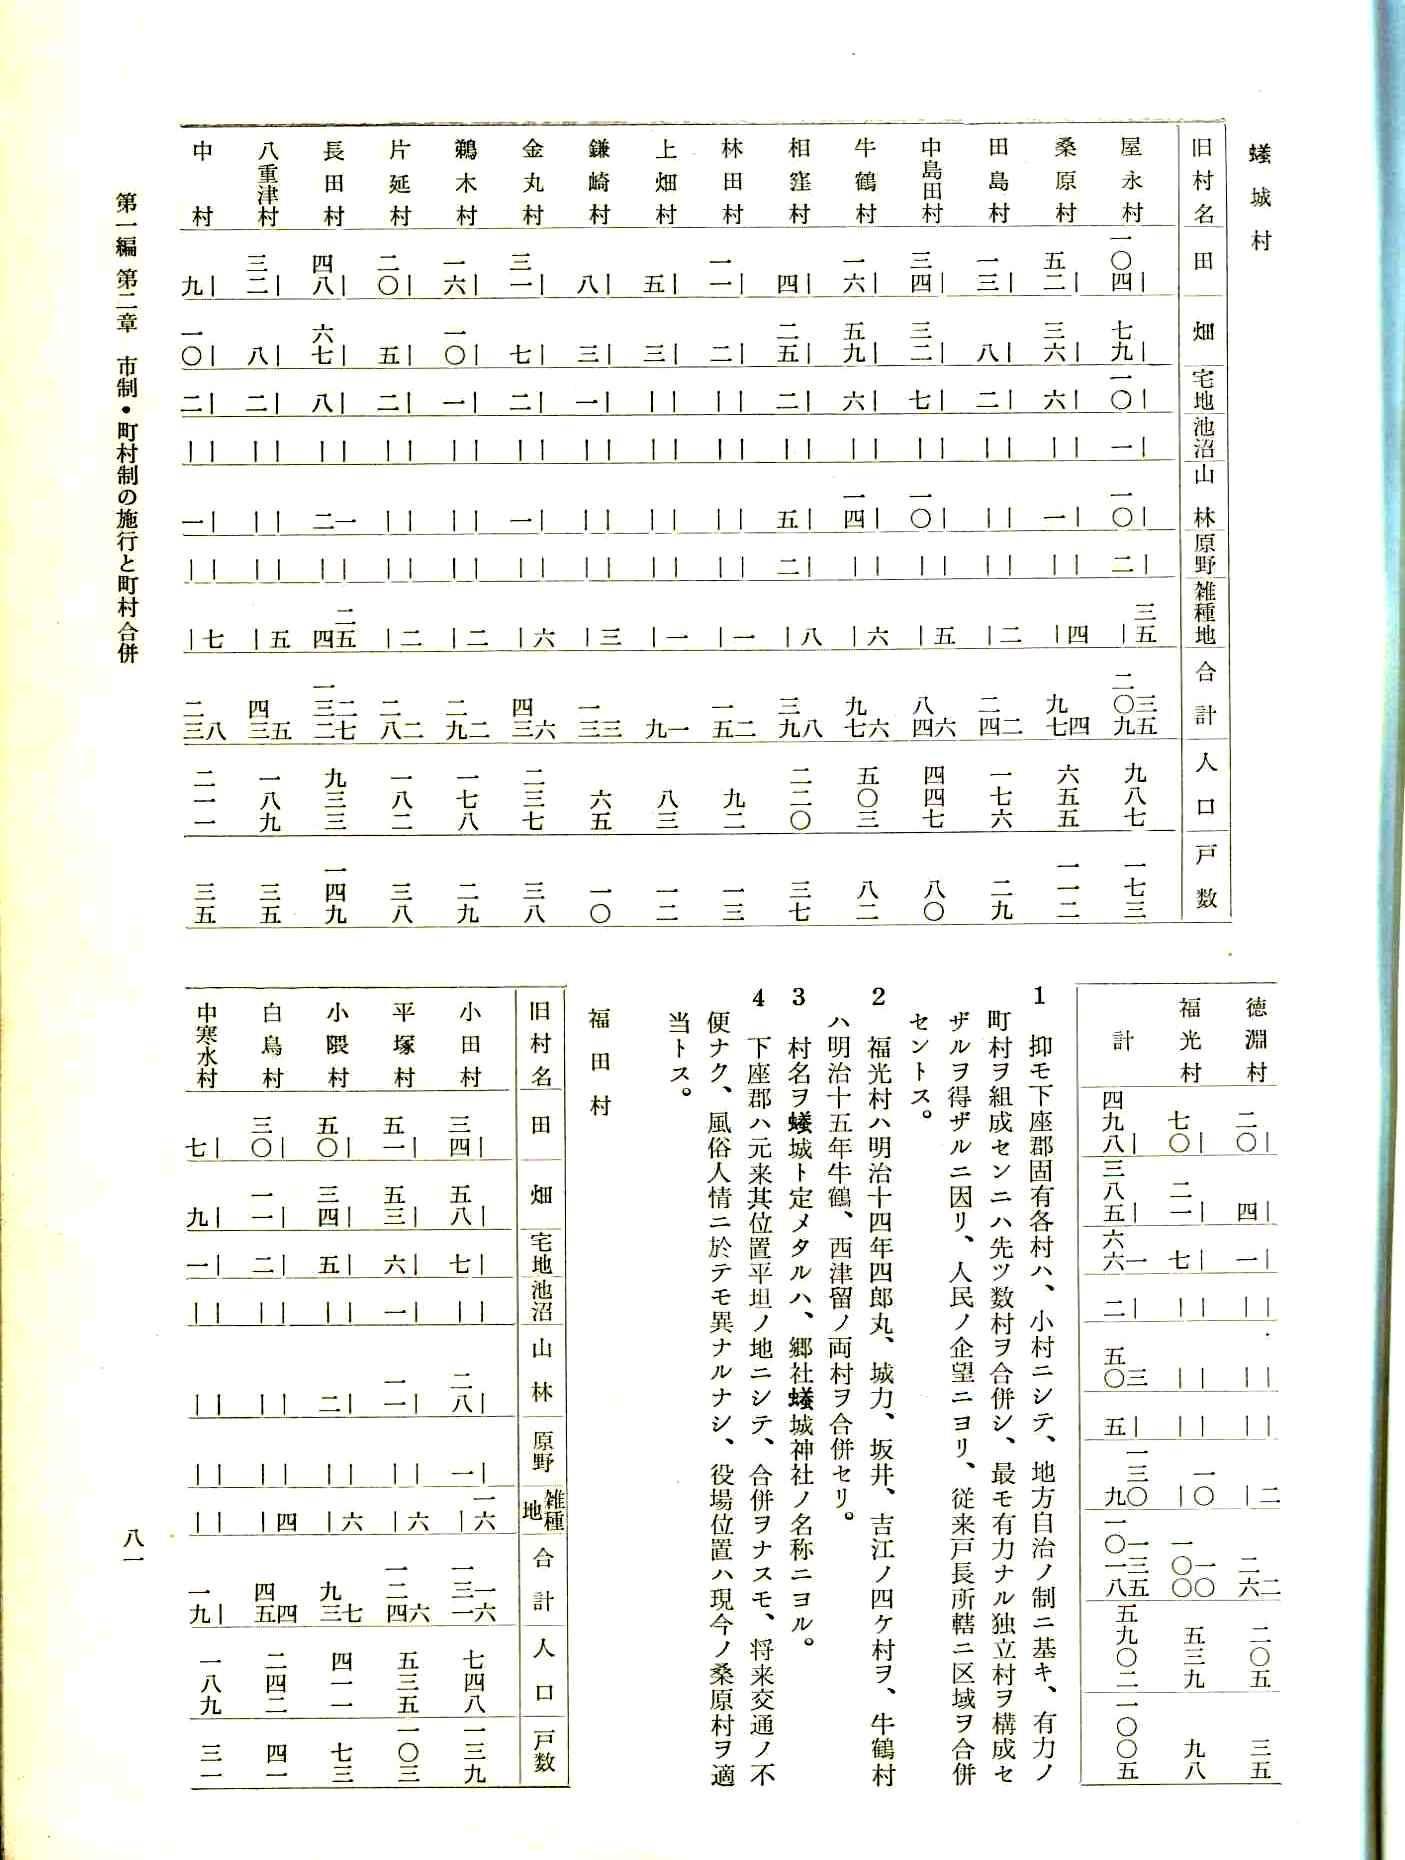 蟻城村
旧村名 田 畑 宅地 池沼 山林 原野 雑種地 合計 人口 戸数
屋永村 一〇四｜ 七九｜ 一〇｜ 一｜ 一〇｜ 二｜ ｜三五 二〇九三五 九八七 一七三
桑原村 五二｜ 三六｜ 六｜ ｜｜ 一｜ ｜｜ ｜四 九七四 六五五 一一二
田島村 一三｜ 八｜ 二｜ ｜｜ ｜｜ ｜｜ ｜二 二四二 一七六 二九
中島田村 三四｜ 三二｜ 七｜ ｜｜ 一〇｜ ｜｜ ｜五 八四六 四四七 八〇
牛鶴村 一六｜ 五九｜ 六｜ ｜｜ 一四｜ ｜｜ ｜六 九七六 五〇三 八二
相窪村 四｜ 二五｜ 二｜ ｜｜ 五｜ 二｜ ｜八 三九八 二二〇 三七
林田村 一一｜ 二｜ ｜｜ ｜｜ ｜｜ ｜｜ ｜一 一五二 九二 一三
上畑村 五｜ 三｜ ｜｜ ｜｜ ｜｜ ｜｜ ｜一 九一 八三 一二
鎌崎村 八｜ 三｜ 一｜ ｜｜ ｜｜ ｜｜ ｜三 一三三 六五 一〇
金丸村 三一｜ 七｜ 二｜ ｜｜ 一｜ ｜｜ ｜六 四三六 二三七 三八
鵜木村 一六｜ 一〇｜ 一｜ ｜｜ ｜｜ ｜｜ ｜二 二九二 一七八 二九
片延村 二〇｜ 五｜ 二｜ ｜｜ ｜｜ ｜｜ ｜二 二八二 一八二 三八
長田村 四八｜ 六七｜ 八｜ ｜｜ 二一 ｜｜ 四二五 一三二二七 九三三 一四九
八重津村 三二｜ 八｜ 二｜ ｜｜ ｜｜ ｜｜ ｜五 四三五 一八九 三五
中村 九｜ 一〇｜ 二｜ ｜｜ 一｜ ｜｜ ｜七 二三八 二一一 三五
徳淵村 二〇｜ 四｜ 一｜ ｜｜ ｜｜ ｜｜ ｜二 二六二 二〇五 三五
福光村 七〇｜ 二一｜ 七｜ ｜｜ ｜｜ ｜｜ ｜一〇 一〇〇一〇 五三九 九八
計 四九八｜ 三八五｜ 六六一 二｜ 五〇三 五｜ 九一三〇 一〇一八一三五 五九〇二 一〇〇五
1 抑モ下座郡固有各村ハ、小村ニシテ、地方自治ノ制ニ基キ、有力ノ
町村ヲ組成センニハ先ツ数村ヲ合併シ、最モ有力ナル独立村ヲ構成セ
ザルヲ得ザルニ因リ、人民ノ企望ニヨリ、従来戸長所轄ニ区域ヲ合併
セントス。
2 福光村ハ明治十四年四郎丸、城力、坂井、吉江ノ四ケ村ヲ、牛鶴村
ハ明治十五年牛鶴、西津留ノ両村ヲ合併セリ。
3 村名ヲ蟻城ト定メタルハ、郷社蟻城神社ノ名称ニヨル。
4 下座郡ハ元来其位置平坦ノ地ニシテ、合併ヲナスモ、将来交通ノ不
便ナク、風俗人情ニ於テモ異ナルナシ、役場位置ハ現今ノ桑原村ヲ適
当トス。
福田村
旧村名 田 畑 宅地 池沼 山林 原野 雑種地 合計 人口 戸数
小田村 三四｜ 五八｜ 七｜ ｜｜ 二八｜ 一｜ ｜一六 一三一一六 七四八 一三九
平塚村 五一｜ 五三｜ 六｜ 一｜ 一一｜ ｜｜ ｜六 一二四六 五三五 一〇三
小隈村 五〇｜ 三四｜ 五｜ ｜｜ 二｜ ｜｜ ｜六 九三七 四一一 七三
白鳥村 三〇｜ 一一｜ 二｜ ｜｜ ｜｜ ｜｜ ｜四 四五四 二四二 四一
中寒水村 七｜ 九｜ 一｜ ｜｜ ｜｜ ｜｜ ｜｜ 一九｜ 一八九 三一
第一編 第二章 市制・町村制の施行と町村合併
八一